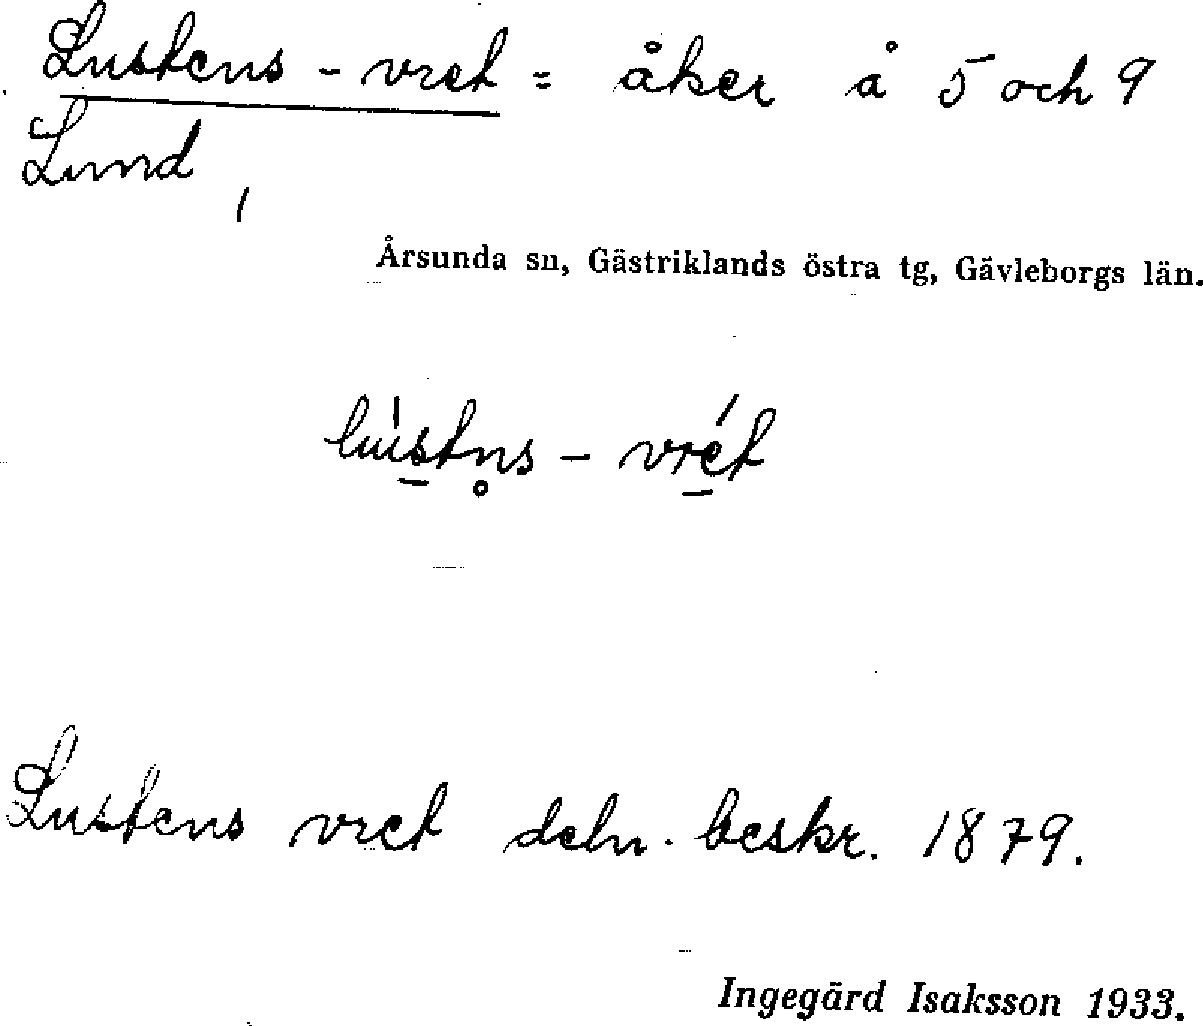 Lustens-vret = åker å 5 och 9
Lund,
Årsunda sn, Gästriklands östra tg, Gävleborgs län.
lústn̥s-vrét
Lustens vret deln. beskr. 1879.
Ingegärd Isaksson 1933.